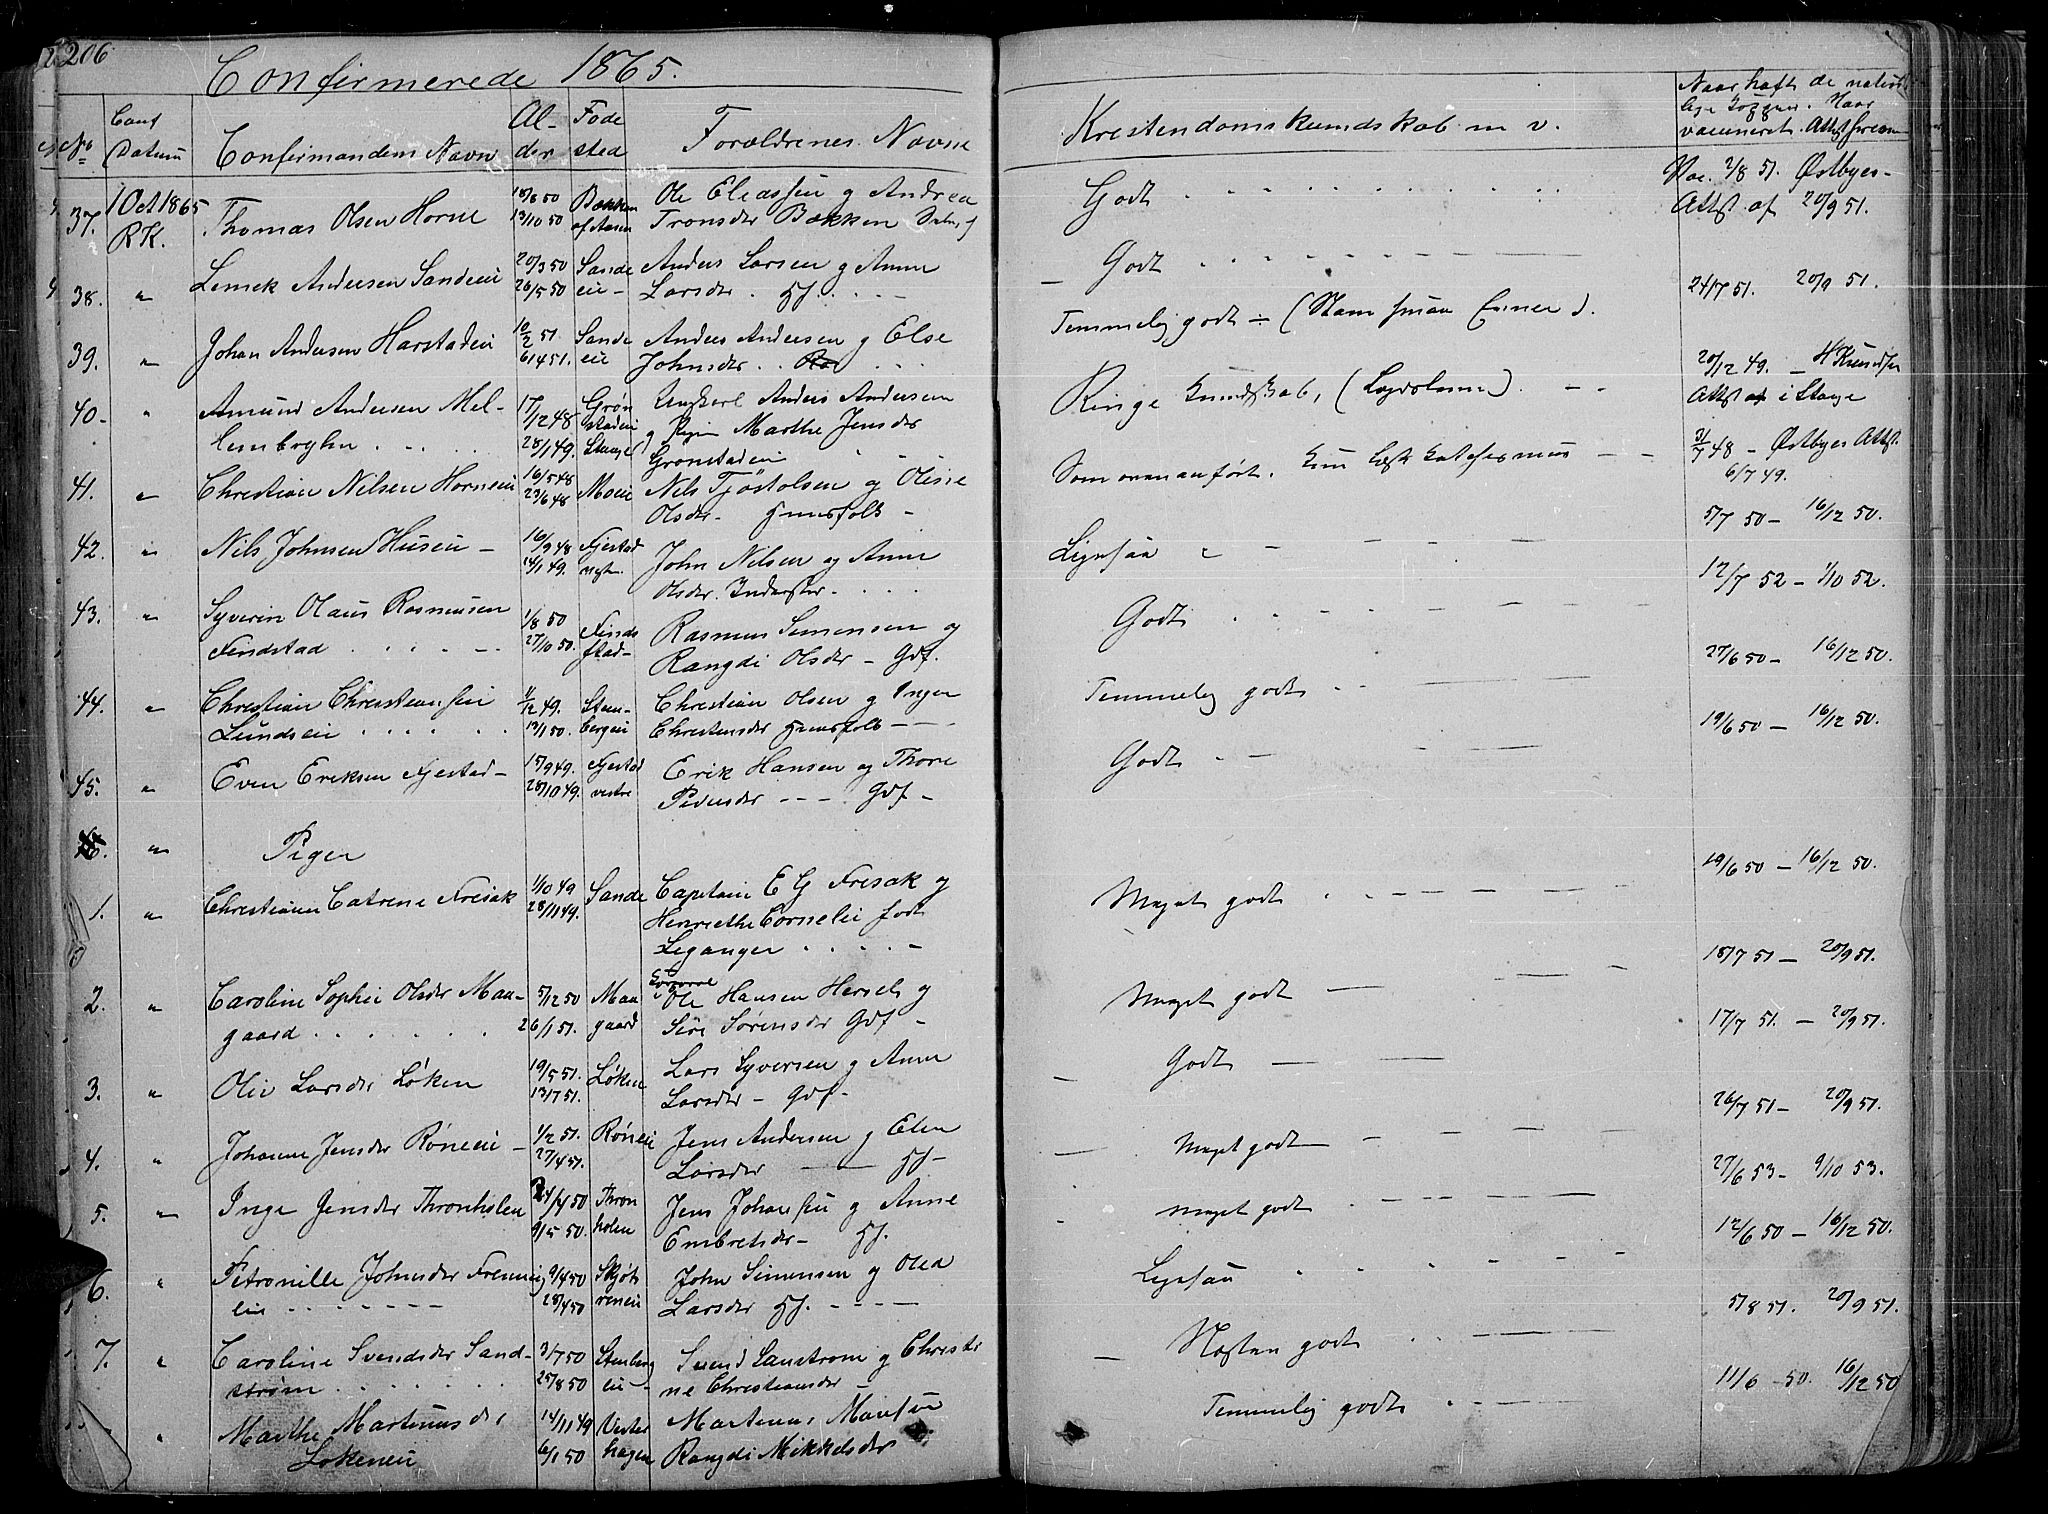 206
Confirmerede 1865.
No
Conf Datum
Confirmandens Navn
Alder
Fødested
Forældrenes Navne
Kristendomskundskab m v.
Naar havt de naturlige Kopper. Naar vaccineret. Attest fra
37. 1 Oct 1865 RK. Thomas Olsen Horne 18/8 50 13/10 50 Bækken af Aasen Ole Eliassen g Andrea
Tronsdr Bækken
Godt
Vac. 2/8 51. Østbyes
Attst af 20/9 51.
38. " Lensek Andersen Sandeie 20/3 50 26/5 50 Sande eie Anders Larsen g Anne
Larsdr. Hf.
Godt
24/7 51. 20/9 51.
39. " Johan Andersen Harstadeie 10/2 51 6/4 51. Sande eie Anders Andersen g Else
Johnsdr
Temmelig godt
20/12 49.
40. " Amund Andersen Mel-
17/12 48 28/1 49. Grønstadeie Stange Ungkarl Anders Andersen
g Pigen Marthe Jensdr
Gronstadeie
Ringe Kundskab,
Attst i Stange
41. " Christian Nilsen Horneie 16/5 48 23/6 48 Moeie Nils Tjøstolsen og Olisie
Olsdr
Som ovenanført. kun læst Katesismus
31/7 48 - Østbyes Attst.
6/7 49.
42. " Nils Johnsen Huseie - 16/9 48 14/1 49. Fjestad John Nilsen og Anne
Olsdr. Inderster
Ligesaa
5/7 50 - 16/12 50.
43. " Syverin Olaus Rasmusen
Findstad 1/8 50 27/10 50. Findstad Rasmus Simensen og
Rangdi Olsdr - Gdf.
Godt
12/7 52 - 1/10 52.
44. " Christian Christiansen
Lundseie 1/12 49. 13/1 50. Stenbergeie Christian Olsen g Inger
Christensdr
Temmelig godt
27/6 50 - 16/12 50.
45. " Even Eriksen Fjestad - 15/9 49. 28/10 49. Fjestad vestre Erik Hansen og Thore
Gdf -
Godt
19/6 50 - 16/12 50.
" Piger
1. " Christiane Catrine Frisak 1/10 49 28/11 49. Sande Capitain E G Frisak og
Henriethe Cornelie født
Leganger
Meget godt
19/6 50 - 16/12 50.
2. " Caroline Sophie Olsdr Maa-
gaard 5/12 50 26/1 51. Maagaard Ole Hansen Hersel g
Sire Sørensdr Gdf -
Meget godt
18/7 51 - 20/9 51.
3. " Olie Larsdr Løken 19/5 51. 13/7 51. Løken Lars Syversen g Anne
Larsdr - Gdf -
Godt
17/7 51. - 20/9 51.
4. " Johanne Jensdr Røneeie - 1/2 51. 27/4 51. Røneie Jens Andersen g Elen
Larsdr Hf -
Meget godt
26/7 51 - 20/9 51.
5. " Inge Jensdr Thronholen 24/4 50 9/5 50. Thronholen Jens Johansen g Anne
Embretsdr - Hf.
meget godt
27/6 53 - 9/10 53.
6. " Petronille Johnsdr
9/4 50 28/4 50 John Simensen g Olea
Larsdr Hf.
Ligesaa
12/6 50 - 16/12 50.
7. " Caroline Svendsdr Sand-
strøm 3/7 50 25/8 50 Stenbergeie Svend Sanstrom g Christi
ne Christiansdr
Næsten godt
5/8 51. 20/9 51.
" Marthe Martinusdr
Lokeneie 14/11 49 6/1 50 Vesterhagen Martinus Monsen
Rangdi Mikkelsdr
Temmelig godt
11/6 50. 16/12 50